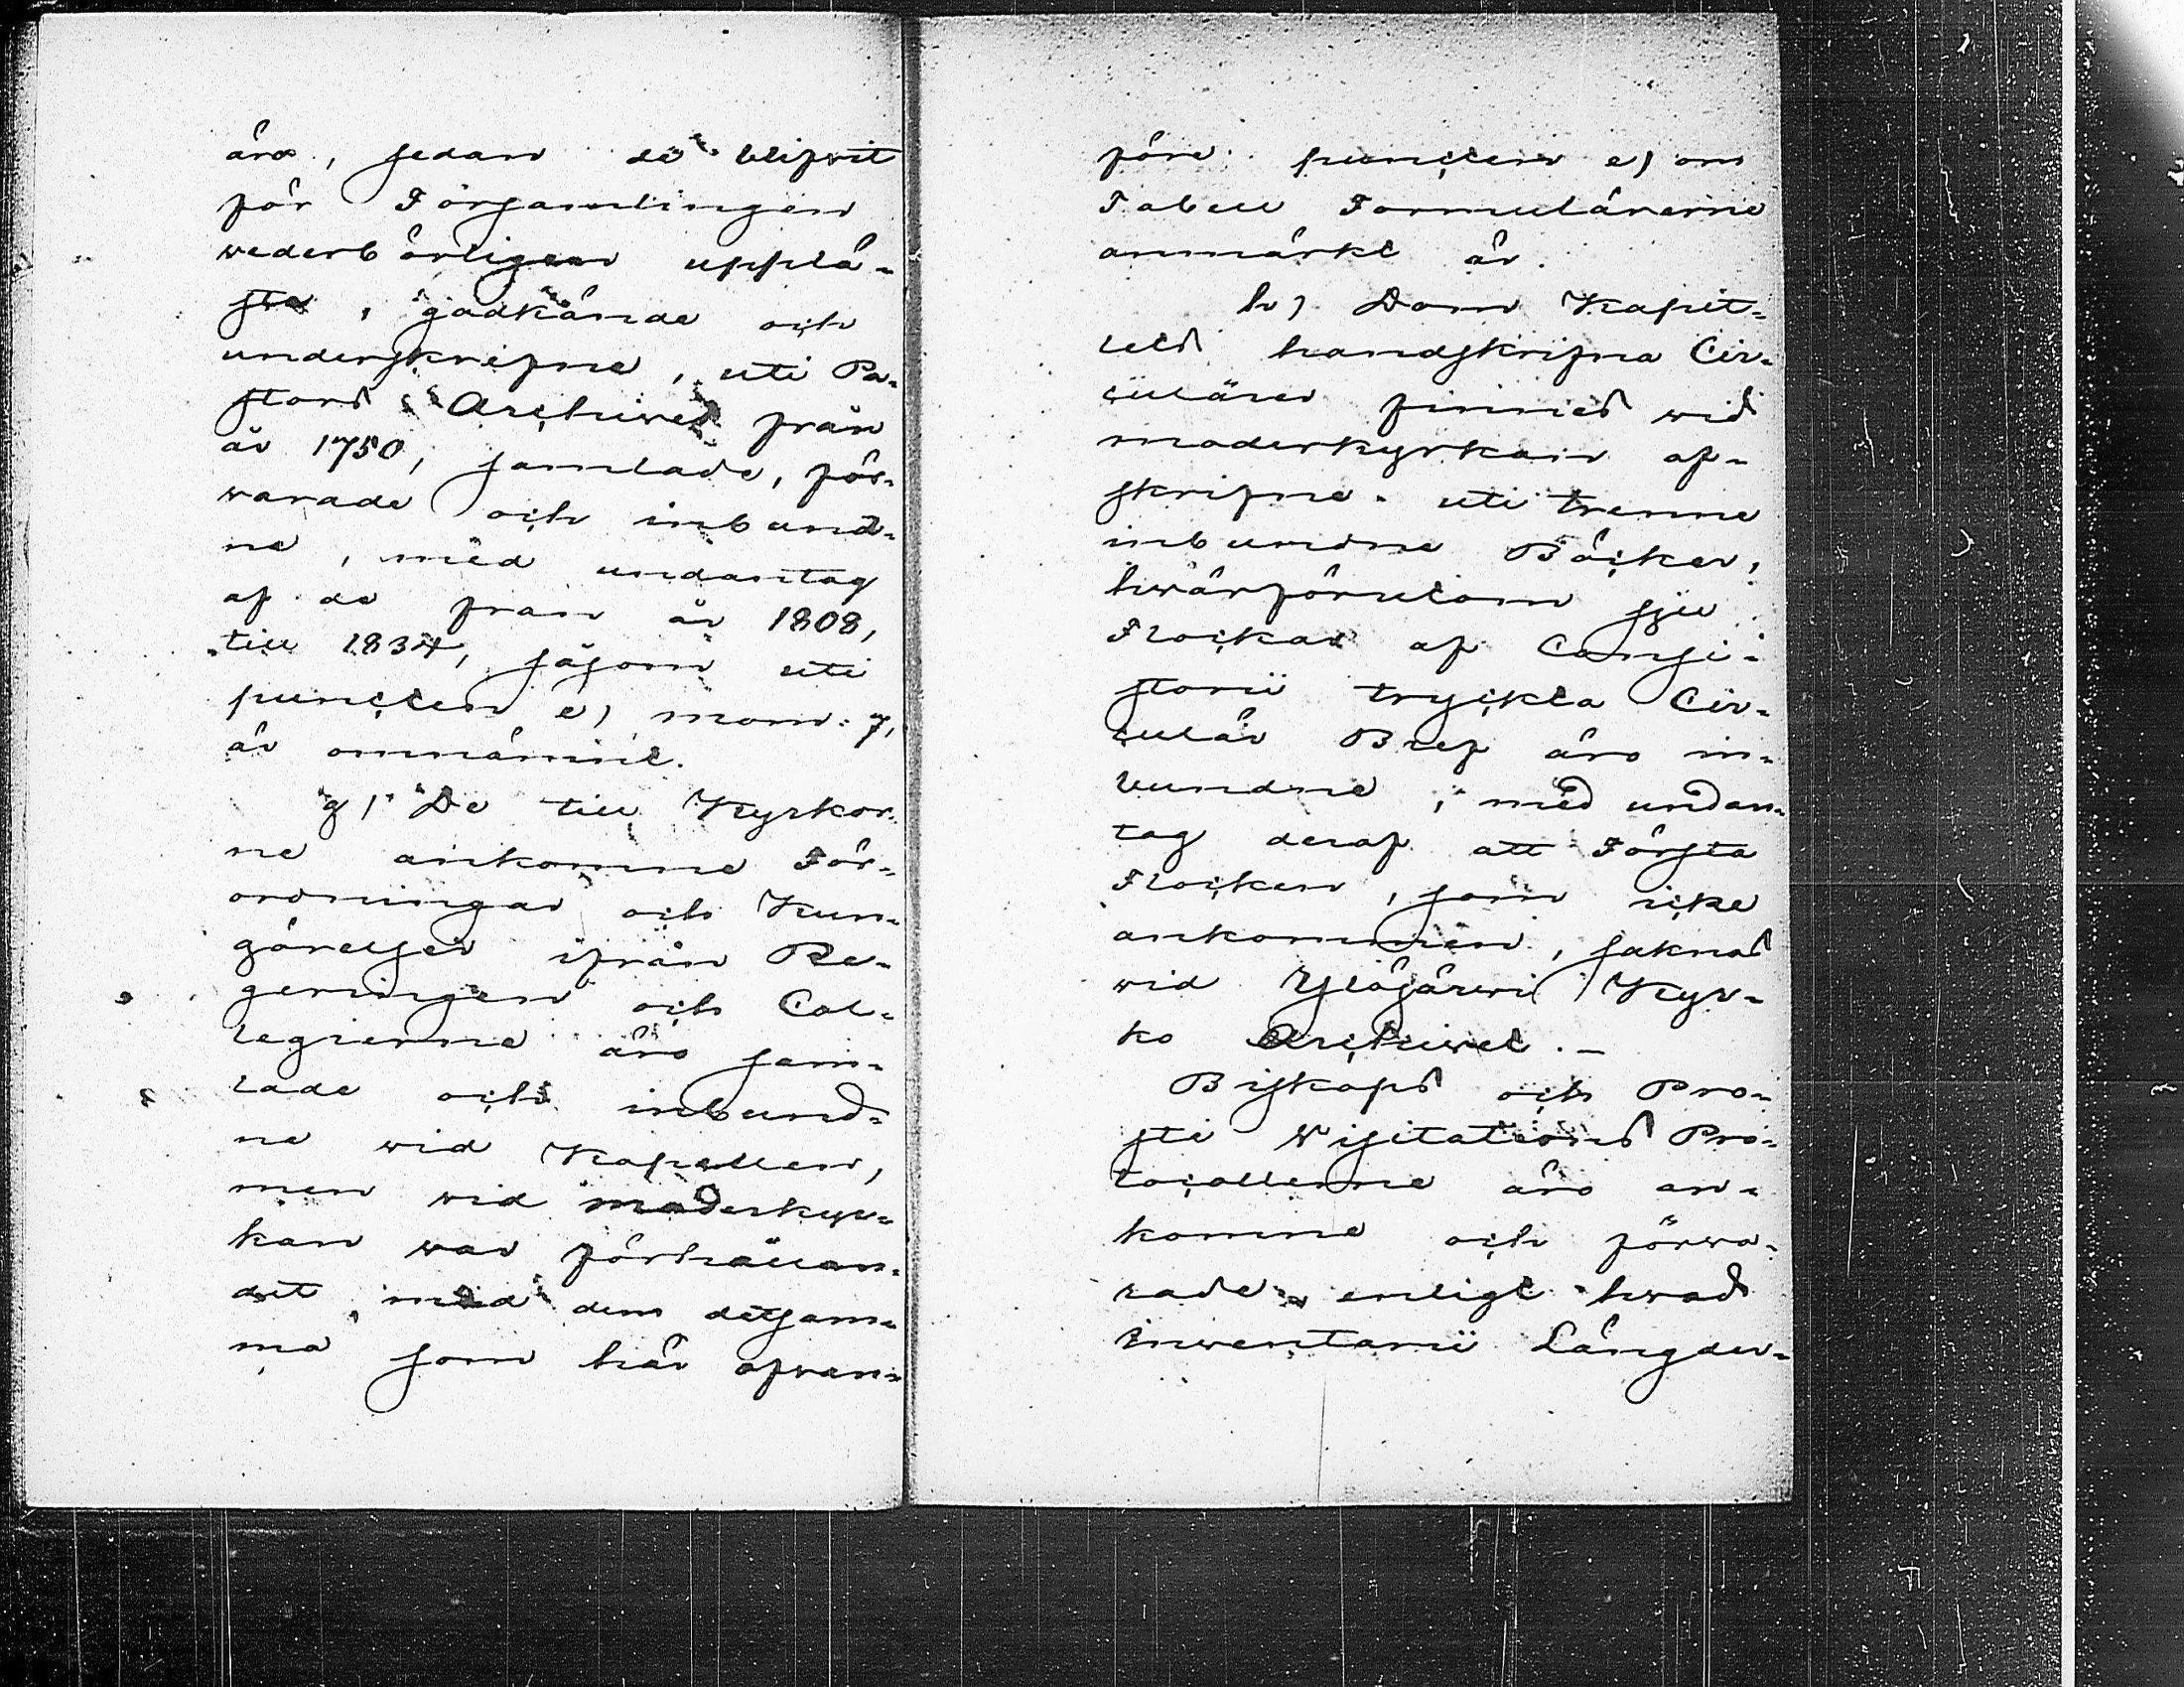 äro, sedan de blifwit
för Församlingen
wederbörligen upplä-
sta, godkände och
underskrifne, uti Pa-
stors Archivet från
år 1750, samlade, för-
warade och inbund-
ne, med undantag
af de från år 1808,
till 1834, såsom uti
puncten e) mom: 7,
är omnämnt.
g) De till Kyrkor-
ne ankomne För-
ordningar och Kun-
görelser ifrån Re-
geringen och Col-
legierne äro sam-
lade och inbund-
ne wid Kapellen,
men wid moderkyr-
kan war förhållan-
det med dem detsam-
ma som här ofwan-
före puncten e) om
Tabell Formulärerne
anmärkt är.
h) Dom Kapit-
lets handskrifna Cir-
culärer finnes wid
moderkyrkan af-
skrifne uti trenne
inbundne Böcker,
hwarförutom sju
Flockar af Consi-
storii tryckta Cir-
culär Bref äro in-
bundne, med undan-
tag deraf att Första
Flocken, som icke
ankommen, saknas
wid Ylöjärwi Kyr-
ko Archivet. –
Biskops och Pro-
sti Visitations Pro-
tocollerne äro an-
komne och förwa-
rade enligt hwad
Inwentarii Längder-